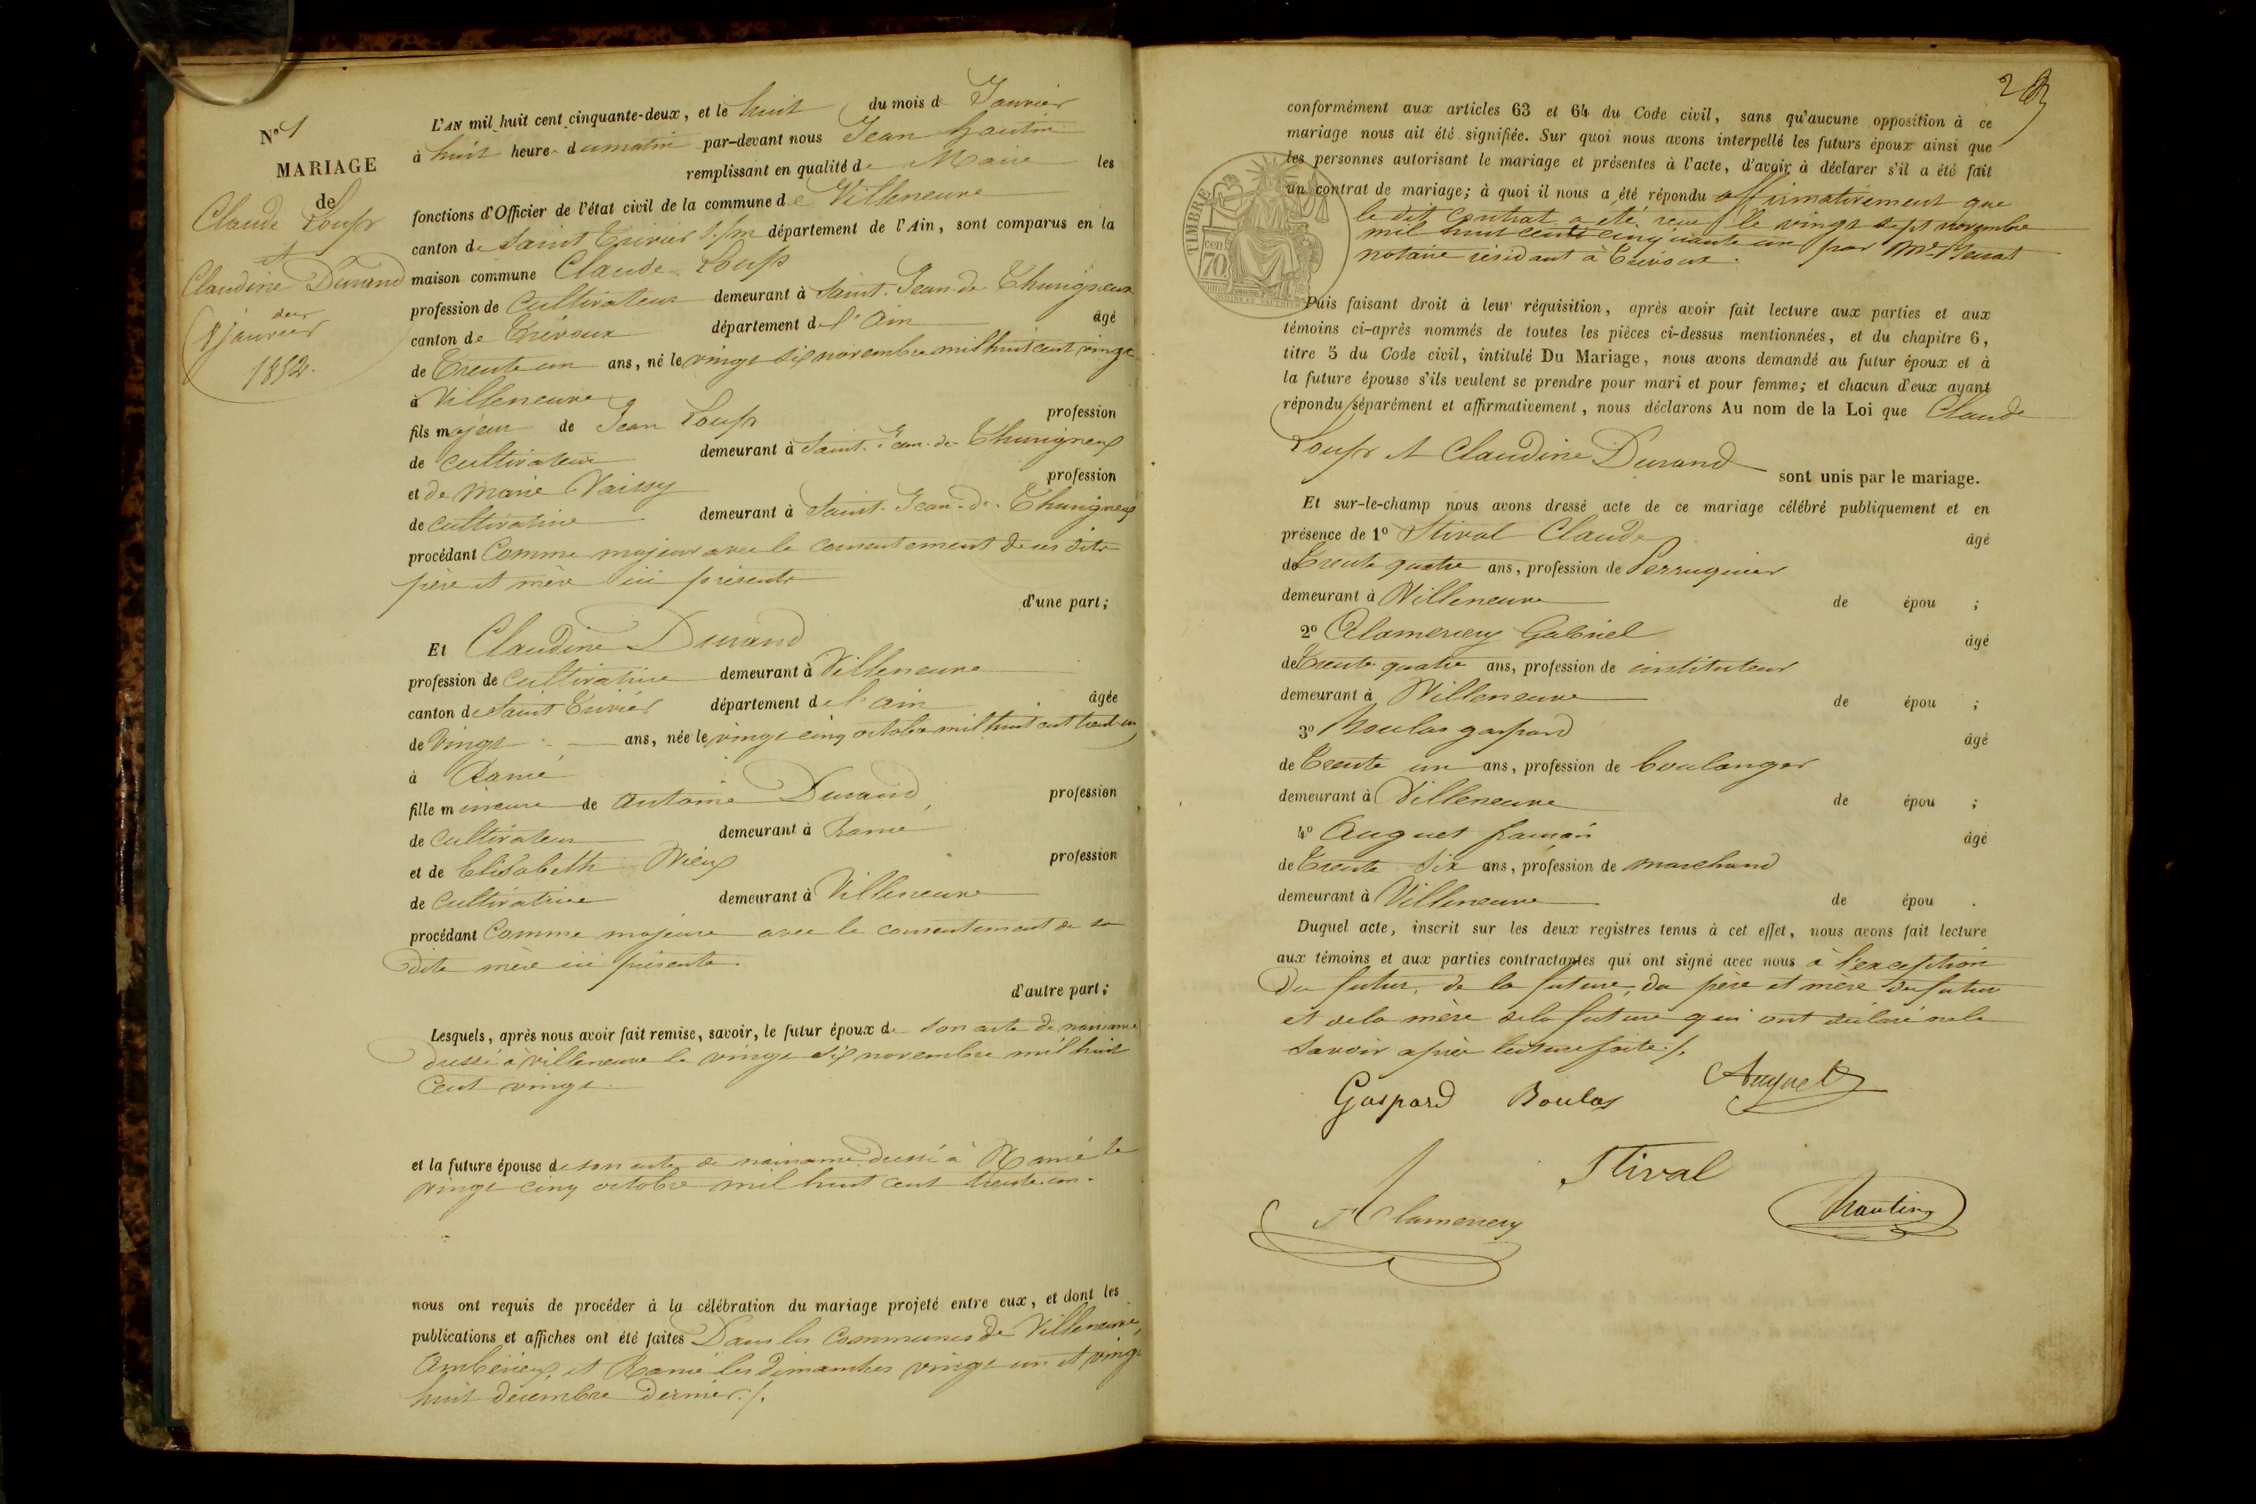 N° 1
MARIAGE
de
Claude Loup
et
Claudine Durand
du
8 janvier
1852.
L'AN mil huit cent cinquante-deux, et le huit du mois de Janvier
à huit heures du matin par-devant nous Jean Nautin
remplissant en qualité de Maire les
fonctions d'Officier de l'état civil de la commune de Villeneuve
canton de Saint Trivier s/m département de l'Ain, sont comparus en la
maison commune Claude Loup
profession de Cultivateur demeurant à Saint-Jean-de-Thurigneux
canton de Trévoux département de l'Ain âgé
de Trente un ans, né le vingt six novembre mil huit cent vingt
à Villeneuve
fils majeur de Jean Loup profession
de cultivateur demeurant à Saint-Jean-de-Thurigneux
et de Marie Vaissy profession
de cultivatrice demeurant à Saint-Jean-de-Thurigneux
procédant Comme majeur avec le consentement de ses dits
père et mère ici présents
d'une part;
Et Claudine Durand
profession de cultivatrice demeurant à Villeneuve
canton de Saint Trivier département de l'ain âgée
de Vingt ans, née le vingt cinq octobre mil huit cent trente un
à Rancé
fille mineure de Antoine Durand profession
de cultivateur demeurant à Rancé
et de Elisabeth Vieux profession
de cultivatrice demeurant à Villeneuve
procédant Comme majeure avec le consentement de sa
dite mère ici présente.
d'autre part;
Lesquels, après nous avoir fait remise, savoir, le futur époux de son acte de naissance
dressé à Villeneuve le vingt six novembre mil huit
Cent vingt
et la future épouse de son acte de naissance dressé à Rancé le
vingt cinq octobre mil huit cent trente un.
nous ont requis de procéder à la célébration du mariage projeté entre eux, et dont les
publications et affiches ont été faites Dans les communes de Villeneuve,
Ambérieux, et Rancé les dimanches vingt un et vingt
huit décembre dernier./.
2
conformément aux articles 63 et 64 du Code civil, sans qu'aucune opposition à ce
mariage nous ait été signifiée. Sur quoi nous avons interpellé les futurs époux ainsi que
les personnes autorisant le mariage et présentes à l'acte, d'avoir à déclarer s'il a été fait
un contrat de mariage; à quoi il nous a été répondu affirmativement que
le dit contrat a été reçu le vingt sept novembre
mil huit cent cinquante un par Me
notaire résidant à Trévoux.
TIMBRE
cen
70
Puis faisant droit à leur réquisition, après avoir fait lecture aux parties et aux
témoins ci-après nommés de toutes les pièces ci-dessus mentionnées, et du chapitre 6,
titre 5 du Code civil, intitulé Du Mariage, nous avons demandé au futur époux et à
la future épouse s'ils veulent se prendre pour mari et pour femme; et chacun d'eux ayant
répondu séparément et affirmativement, nous déclarons Au nom de la Loi que Claude
Loup et Claudine Durand
sont unis par le mariage.
Et sur-le-champ nous avons dressé acte de ce mariage célébré publiquement et en
présence de 1° Stival Claude âgé
de Trente quatre ans, profession de Perruquier
demeurant à Villeneuve de épou ;
2° Clamerey Gabriel âgé
de Trente quatre ans, profession de instituteur
demeurant à Villeneuve de épou ;
3° Boulas gaspard âgé
de Trente un ans, profession de boulanger
demeurant à Villeneuve de épou ;
4° Auguet âgé
de Trente Six ans, profession de marchand
demeurant à Villeneuve de épou .
Duquel acte, inscrit sur les deux registres tenus à cet effet, nous avons fait lecture
aux témoins et aux parties contractantes qui ont signé avec nous à l'exception
du futur, de la future, du père et mère du futur
et de la mère de la future qui ont déclaré ne le
savoir après lecture faite./.
Gaspard Boulas Auguet
Stival
Clamerey Nautin